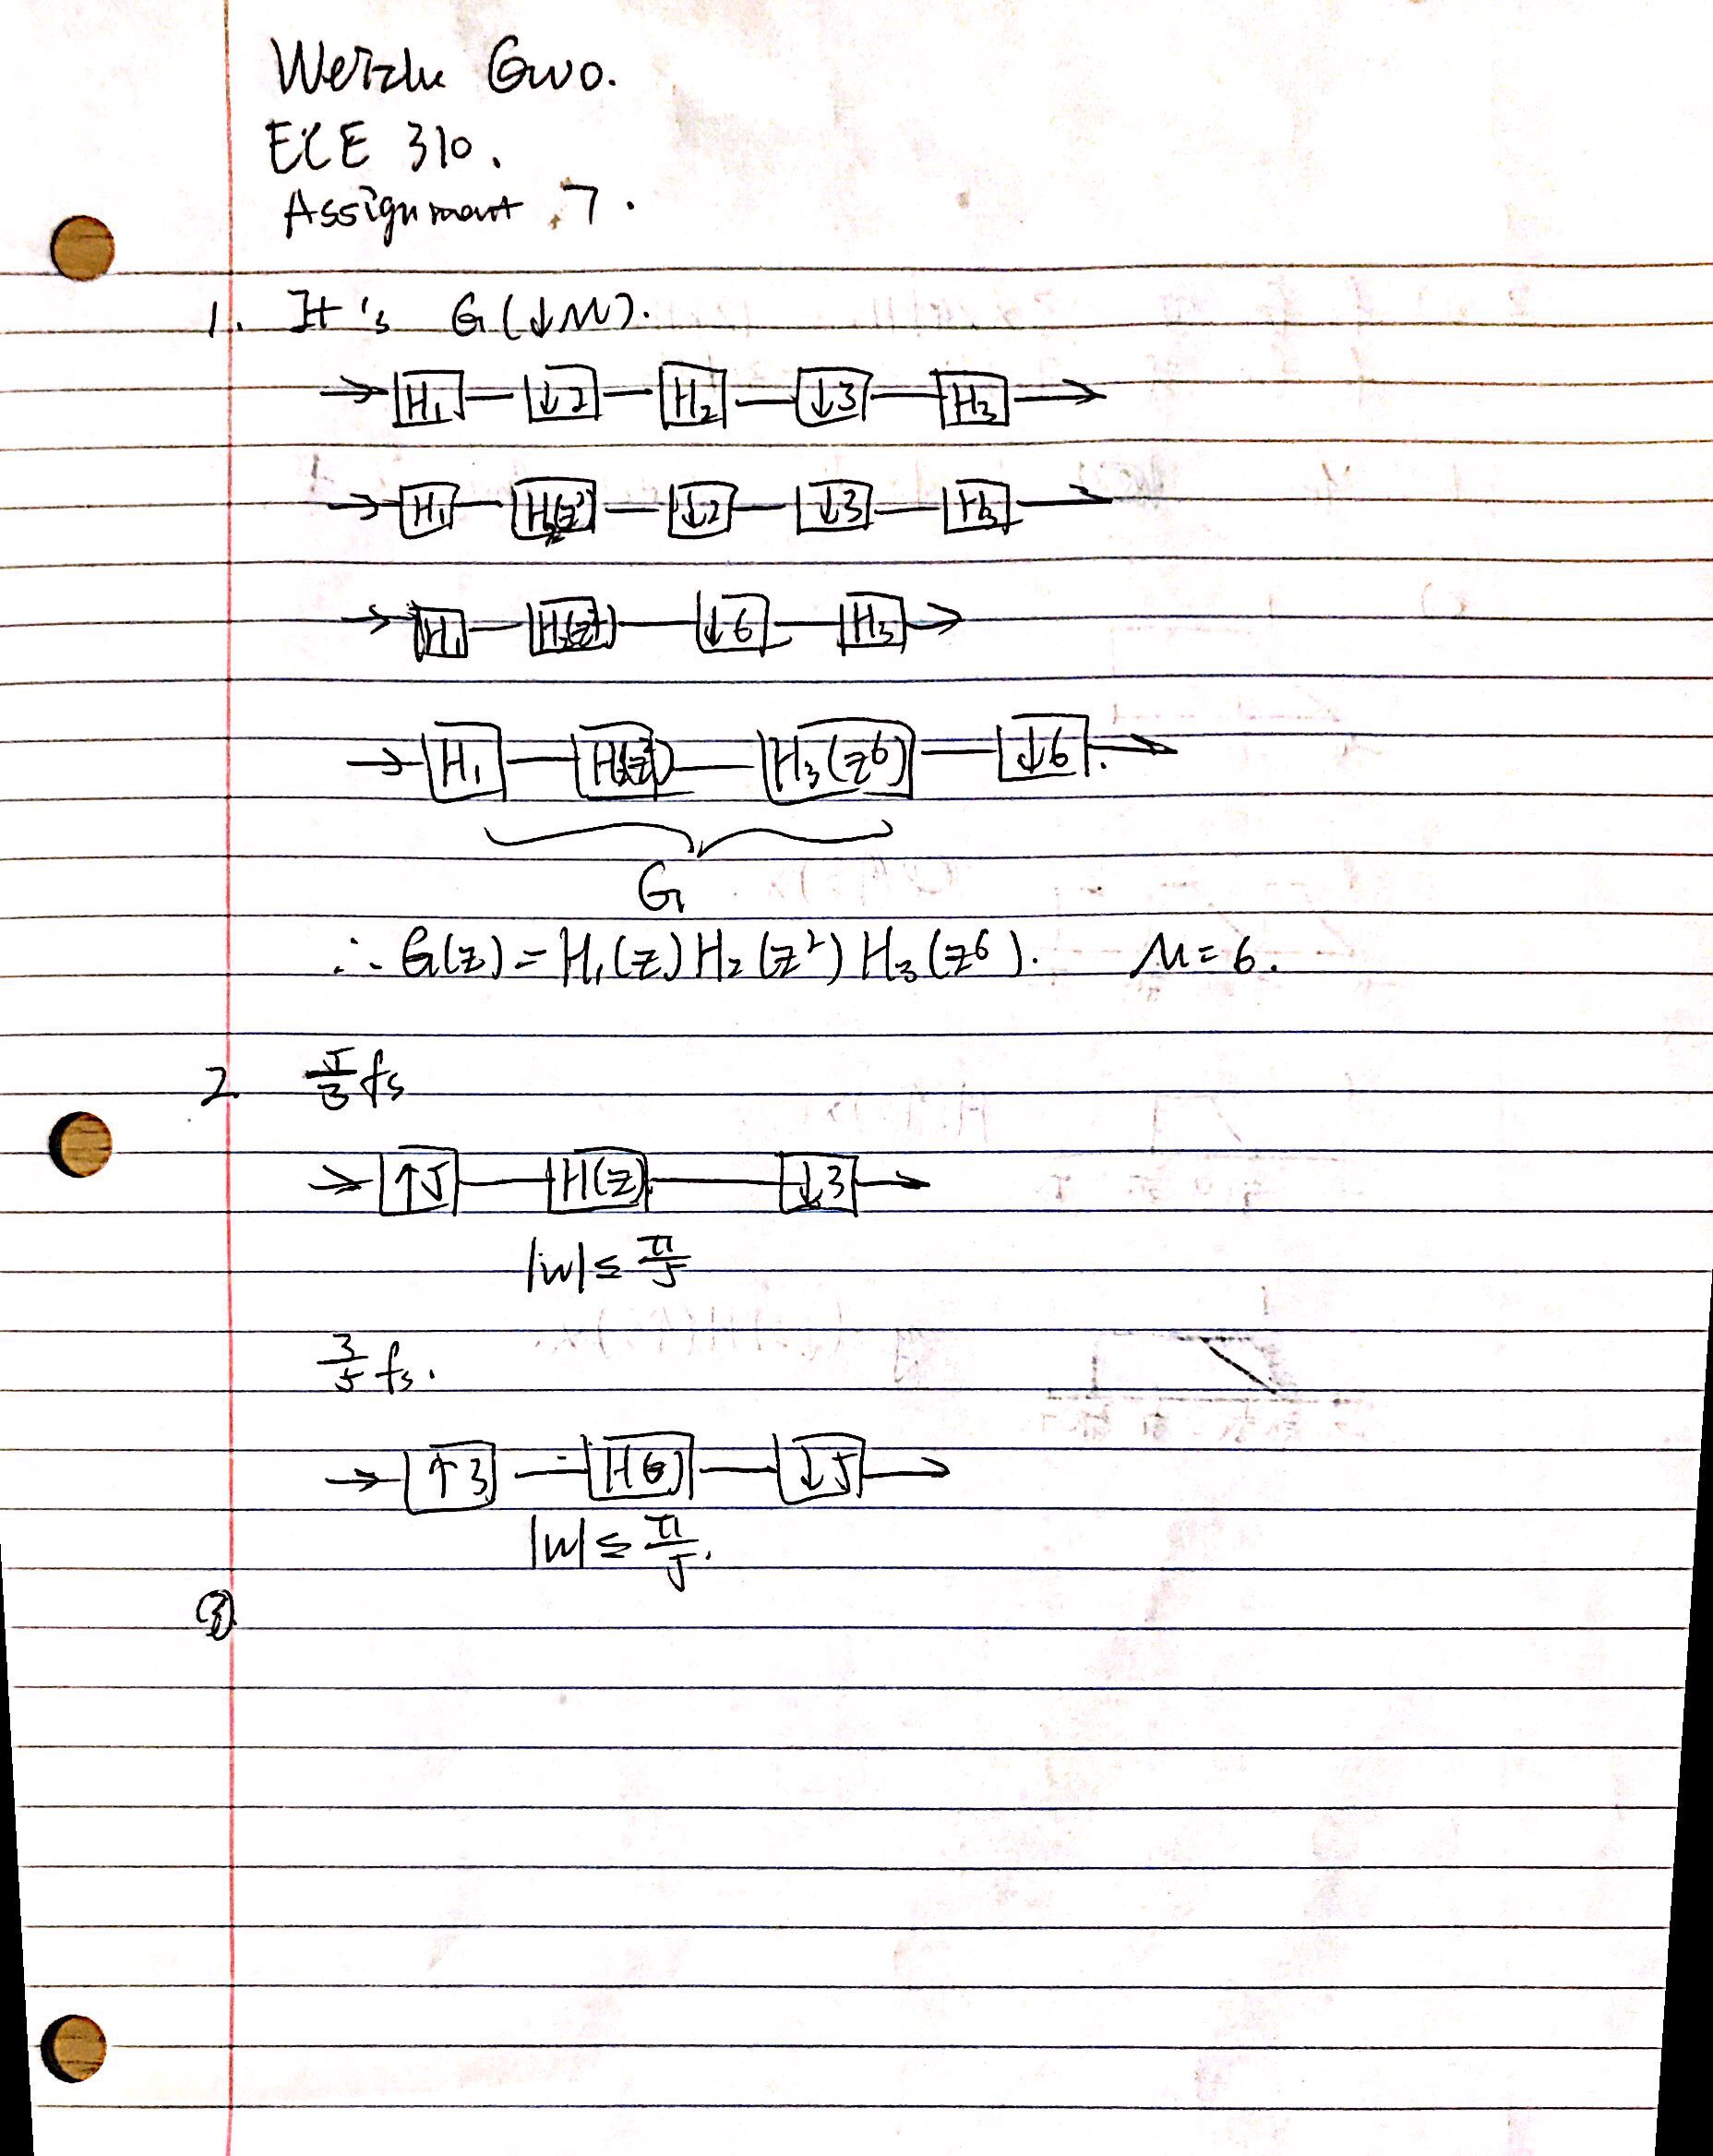 Weizhe Guo.
ECE 310.
Assignment 7.
1. It's G(↓M).
→ H₁ — ↓2 — H₂ — ↓3 — H₃ →
→ H₁ — H₂(z²) — ↓2 — ↓3 — H₃ →
→ H₁ — H₂(z²) — ↓6 — H₃ →
→ H₁ — H₂(z²) — H₃(z⁶) — ↓6 →
G
∴ G(z) = H₁(z) H₂(z²) H₃(z⁶). M = 6.
2. 5/3 fs
→ ↑5 — H(z) — ↓3 →
|w| ≤ π/5
3/5 fs.
→ ↑3 — H(z) — ↓5 →
|w| ≤ π/5.
③